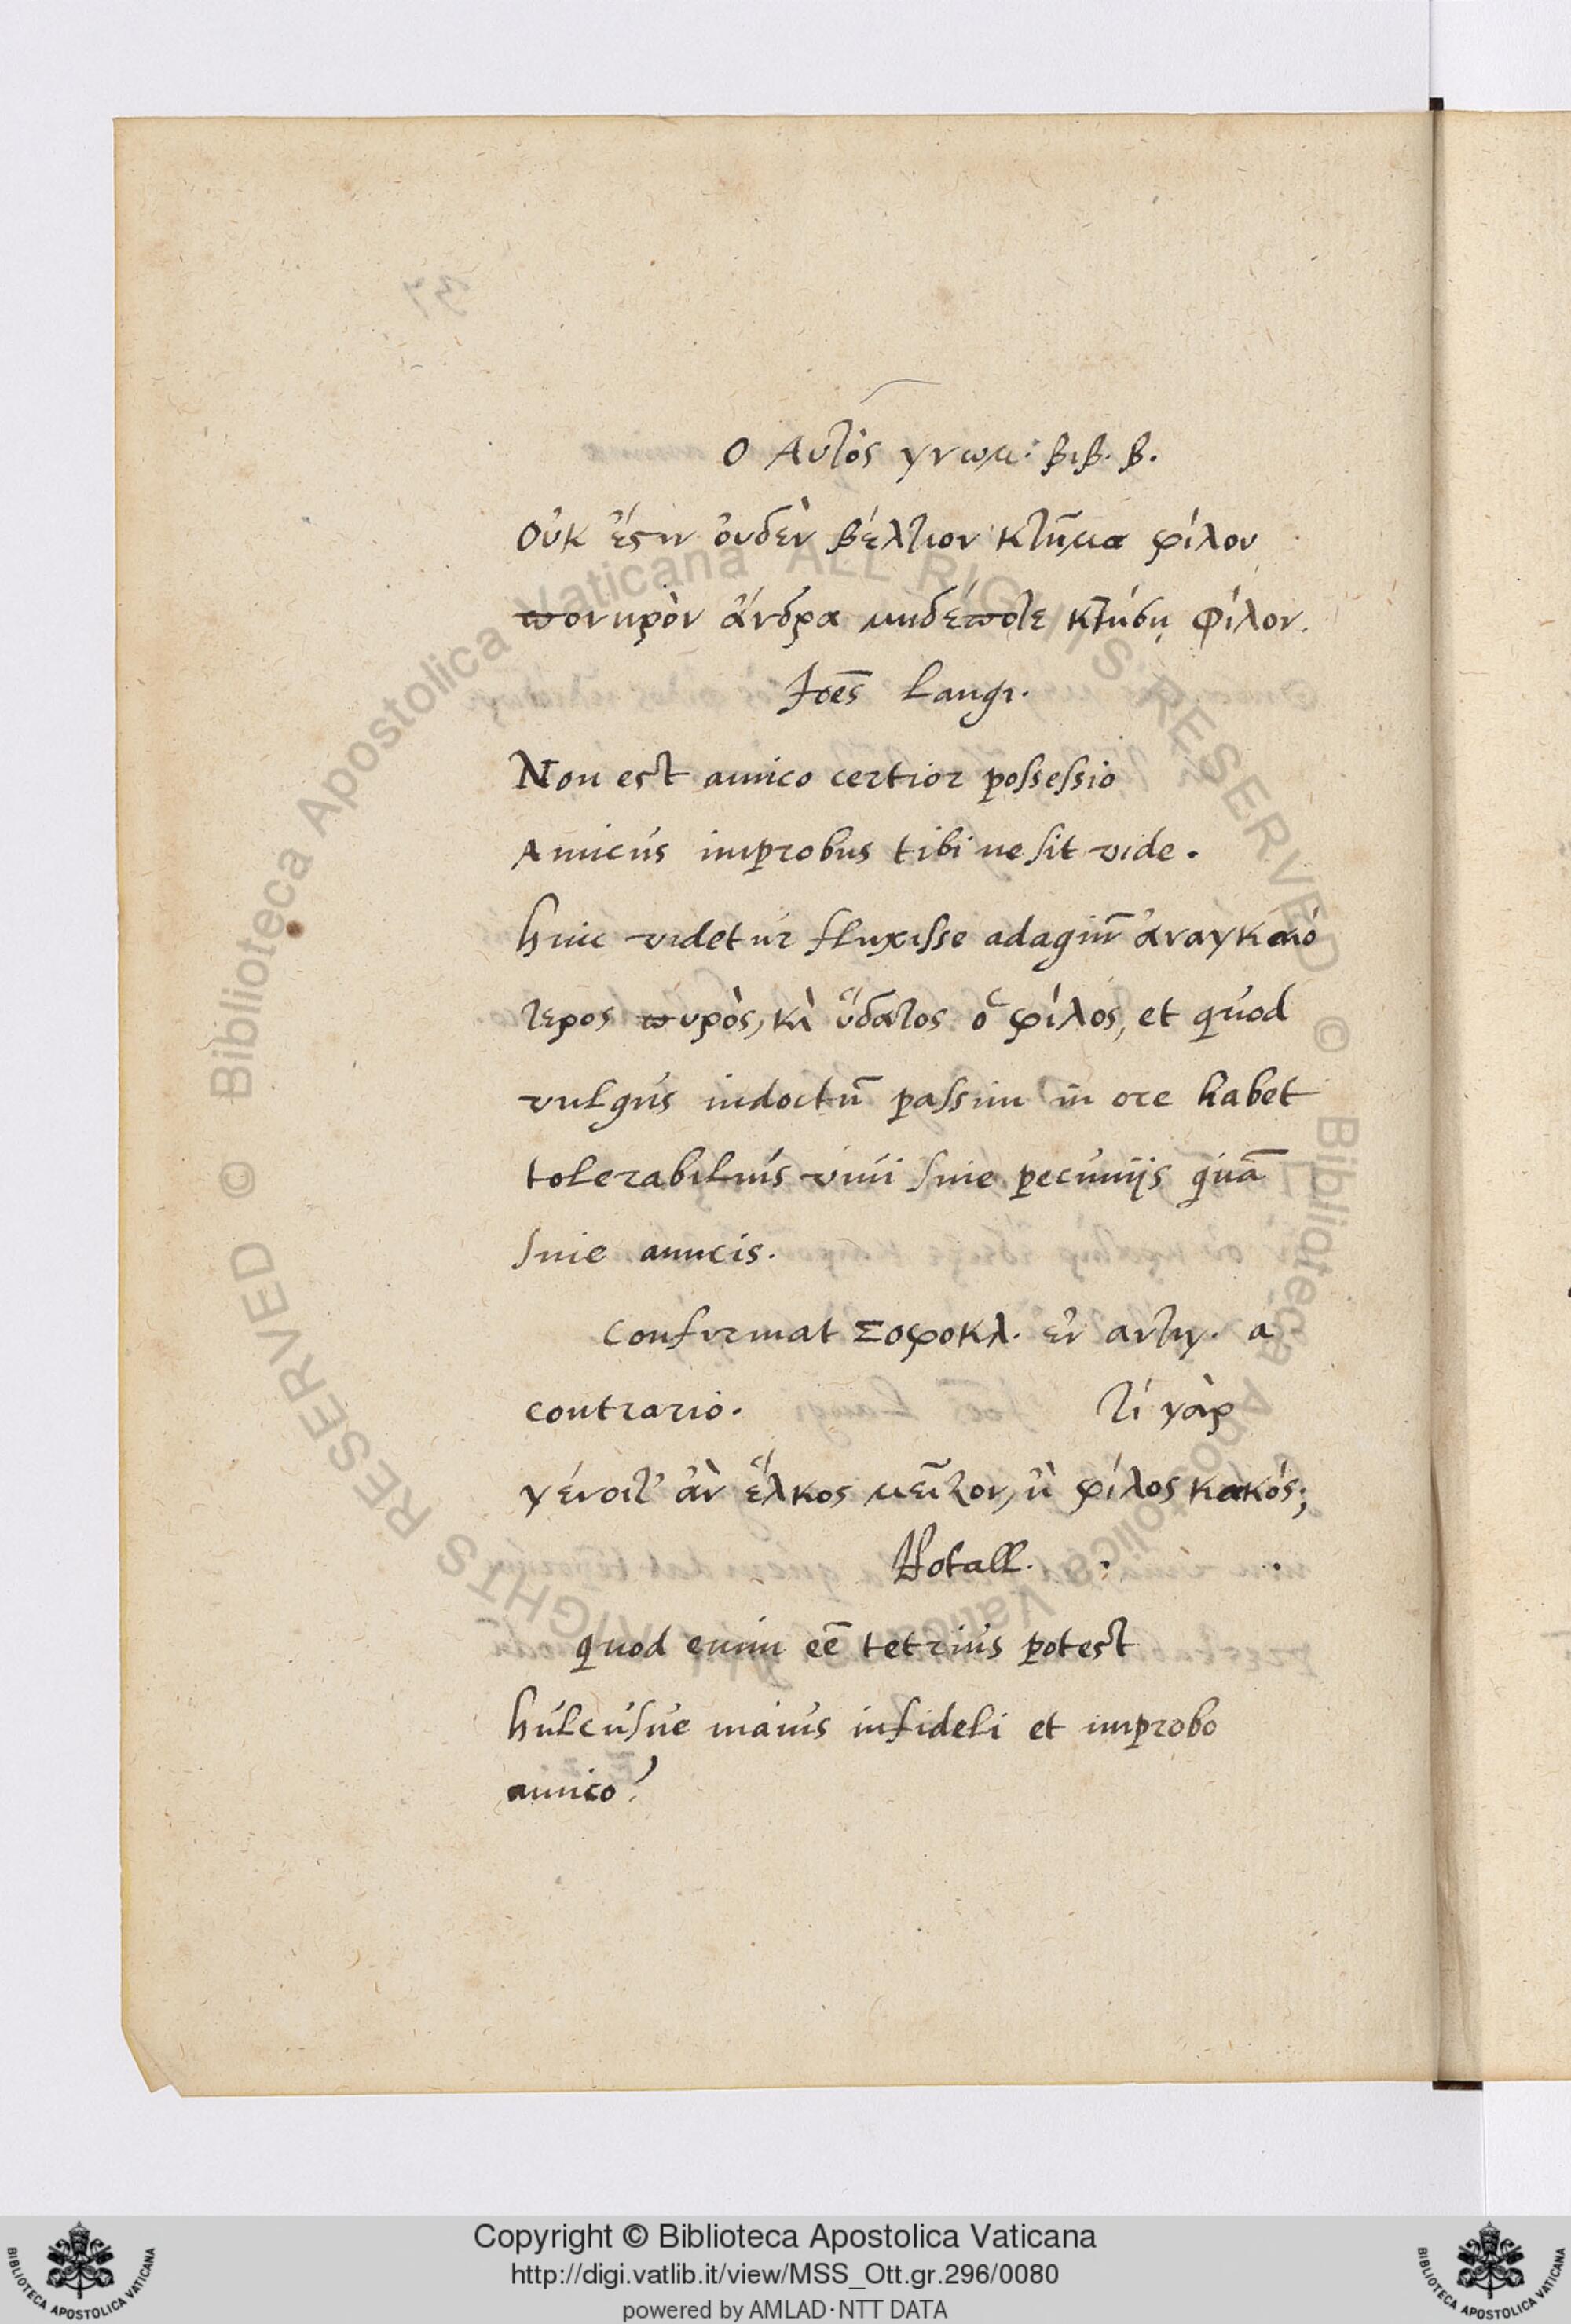 Ο Αυτὸς γνωμ: βιβ. β.
Οὐκ ἔϛιν ὀυδὲν βέλτιον κτῆμα φίλου
ϖονηρὸν ἄνδρα μηδέϖοτε κτήση φίλον.
Joēs Langi.
Non est amico certior possessio
Amicus improbus tibi ne sit vide.
hinc videtur fluxisse adagiū ἀναγκαιό
τερος ϖυρὸς, κὶ ὕδατος ὁ φίλος, et quod
vulgus indoctū passim in ore habet
tolerabilius vivi sine pecunijs quā
sine amicis.
Confirmat Σοφοκλ. ἐν αντιγ. a
contrario. τί γὰρ
γένοιτ' ἀν ἕλκος μεῖζον, ἢ φίλος κακός;
Rotall.
quod enim eē tetrius potest
hulcusue maius infideli et improbo
amico?
Copyright © Biblioteca Apostolica Vaticana
http://digi.vatlib.it/view/MSS_Ott.gr.296/0080
powered by AMLAD·NTT DATA